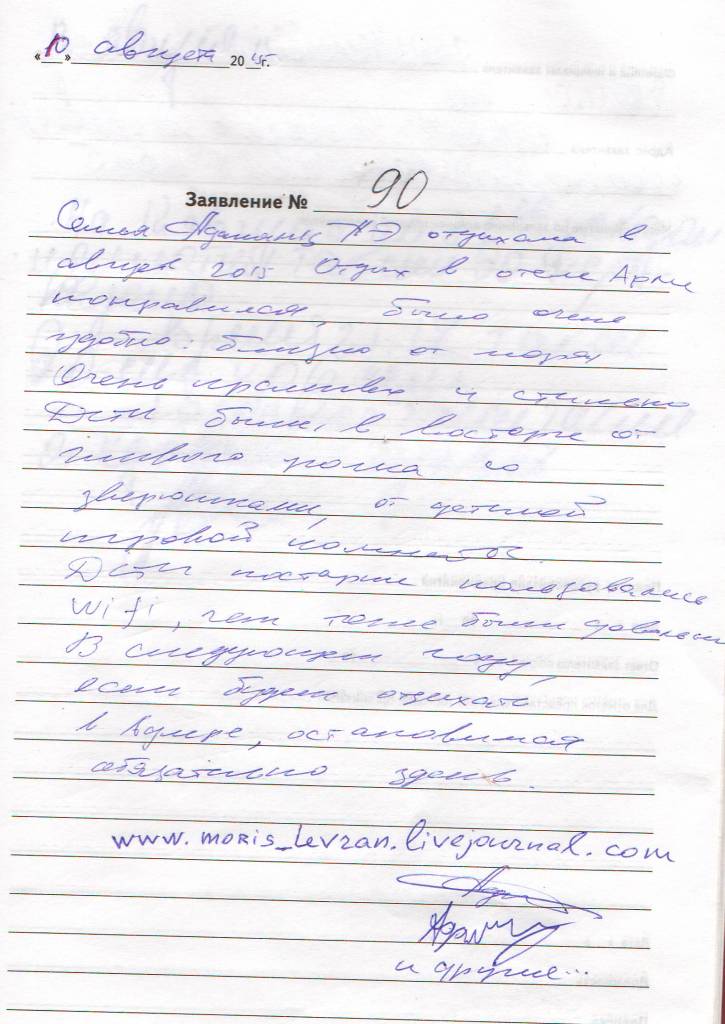 «10» августа 2015г.
Заявление № 90
Семья отдыхала в
августе 2015 Отдых в отеле Арли
понравился, было очень
удобно: близко от моря
Очень красиво и стильно
Дети были в восторге от
живого уголка со
зверюшками, от детской
игровой комнаты.
Дети постарше пользовались
wifi, чем тоже были довольны
В следующем году,
если будем отдыхать
в Адлере, остановимся
обязательно здесь.
www.moris_levran.livejournal.com
и другие...